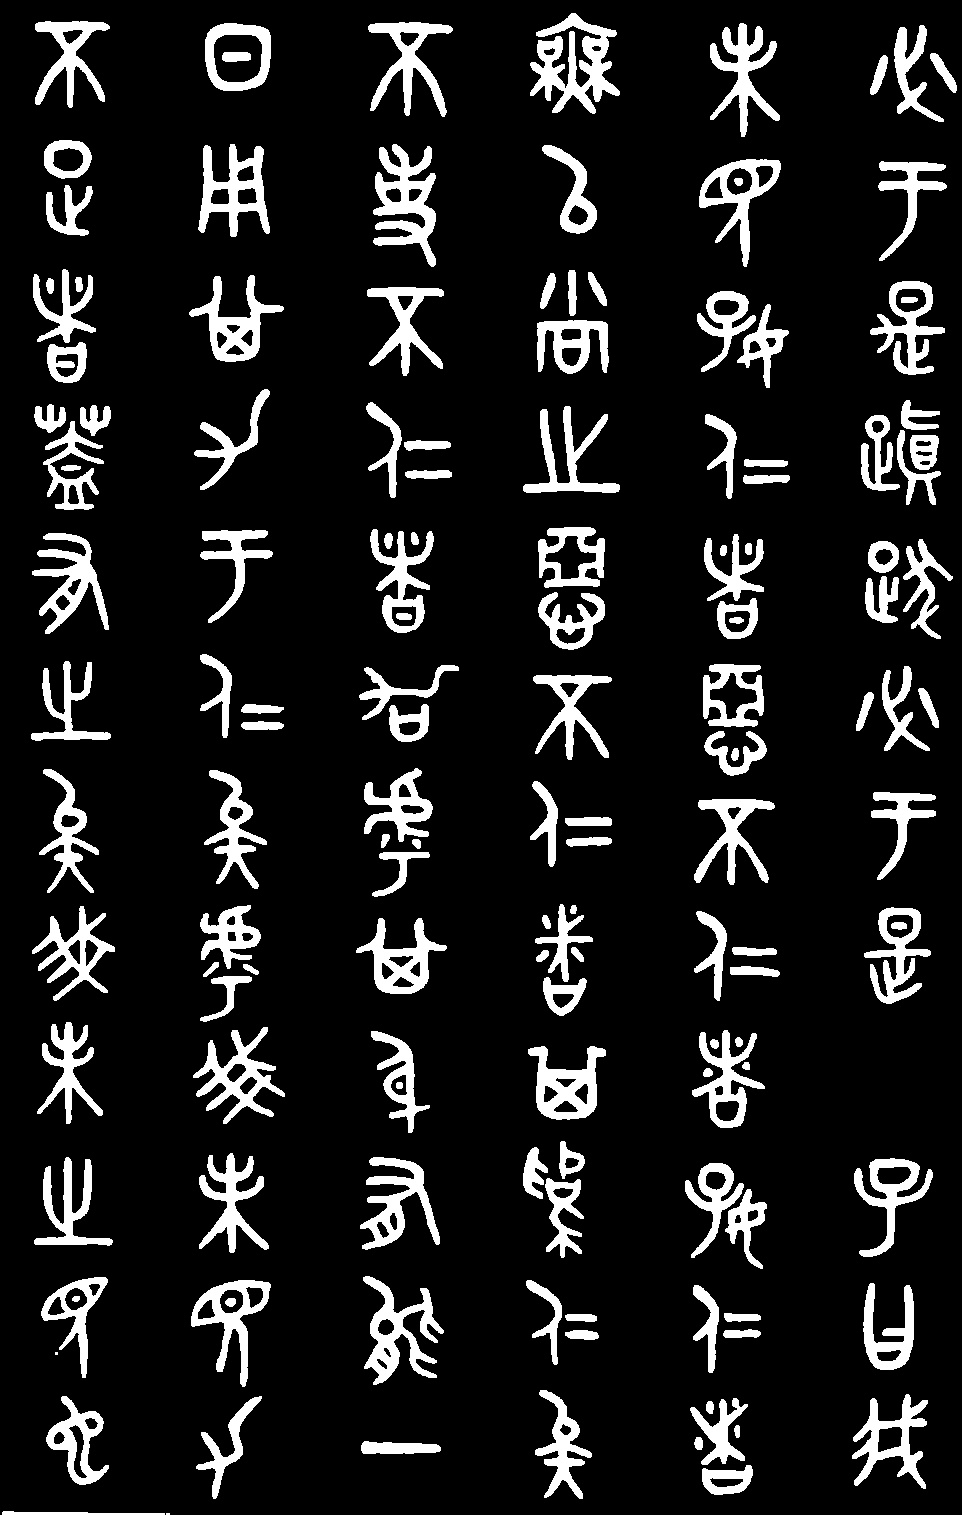 必于是蹎跋必于是　子曰我
未見好仁者惡不仁者好仁者
無以尚之惡不仁者其為仁矣
不使不仁者加乎其身有能一
日用其力于仁矣乎我未見力
不足者蓋有之矣我未之見也